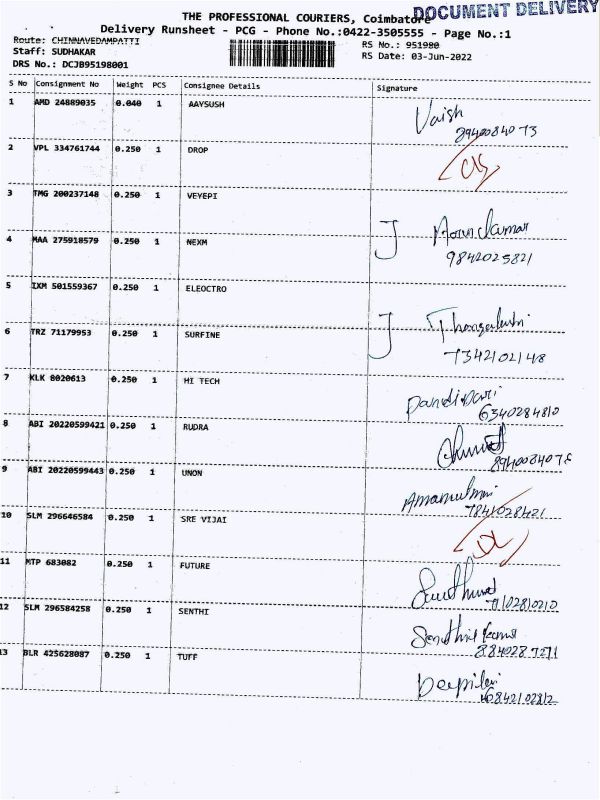 DOCUMENT DELIVERY
THE PROFESSIONAL COURIERS, Coimbatore
Delivery Runsheet - PCG - Phone No.:0422-3505555 - Page No.:1
Route: CHINNAVEDAMPATTI
RS No.: 951980
Staff: SUDHAKAR
RS Date: 03-Jun-2022
DRS No.: DCJB95198001
S No Consignment No Weight PCS Consignee Details Signature
1 AMD 24889035 0.040 1 AAYSUSH Vaish
8940084073
2 VPL 334761744 0.250 1 DROP
3 TMG 200237148 0.250 1 VEYEPI
4 MAA 275918579 0.250 1 NEXM
9842025821
5 IXM 501559367 0.250 1 ELEOCTRO
6 TRZ 71179953 0.250 1 SURFINE
7342102148
7 KLK 8020613 0.250 1 HI TECH
6340284810
8 ABI 20220599421 0.250 1 RUDRA
9 ABI 20220599443 0.250 1 UNON
7841028421
10 SLM 296646584 0.250 1 SRE VIJAI
11 MTP 683082 0.250 1 FUTURE
12 SLM 296584258 0.250 1 SENTHI
13 BLR 425628087 0.250 1 TUFF